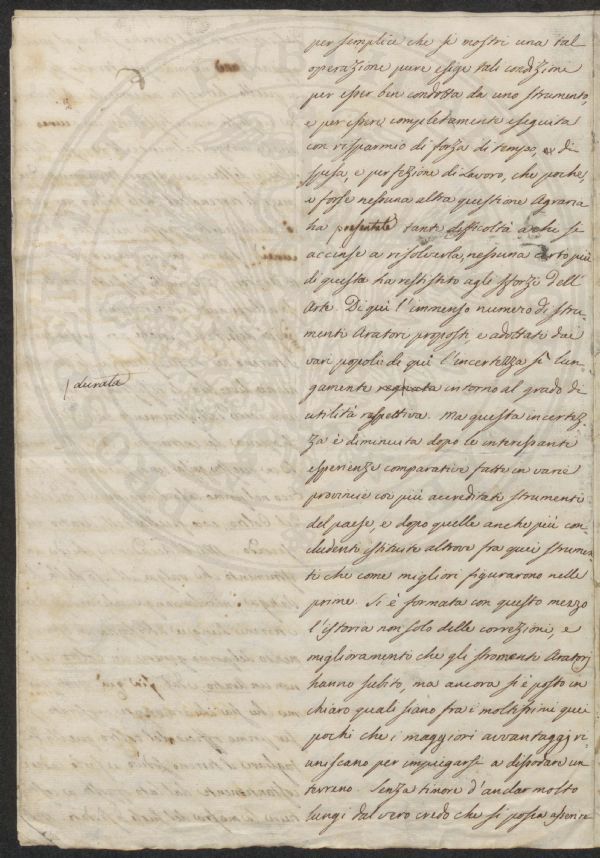 per semplice che si mostri una tal
operazione pure esige tali condizioni
per esser ben condotta da uno strumento,
e per essere completamente eseguita
con risparmio di forza di tempo, e di
spesa, e perfezione di Lavoro, che poche,
e forse nessuna altra questione Agraria
ha presentate tante difficoltà a chi si
accinse a risolverla, nessuna certo più
di questa ha resistito agli sforzi dell'
Arte. Di quì l'immenso numero di stru-
menti Aratori proposti e adottati dai
vari popoli: di quì l'incertezza sì lun-
gamente regnata intorno al grado di
/ durata
utilità respettiva. Ma questa incertez-
za è diminuita dopo le interessanti
esperienze comparative fatte in varie
provincie coi più accreditati strumenti
del paese, e dopo quelle anche più con-
cludenti istituite altrove fra quei strumen
ti che come migliori figurarono nelle
prime. Si è formata con questo mezzo
l'istoria non solo delle correzioni, e
miglioramenti che gli stromenti Aratorj
hanno subito, ma ancora si è posto in
chiaro quali siano fra i moltissimi quei
pochi che i maggiori avvantaggj ri-
uniscano per impiegarsi a dissodare un
terreno. Senza timore d'andar molto
lungi dal vero credo che si possa asseri-